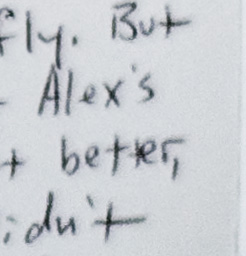 fly. But
Alex's
+ better,
idn't